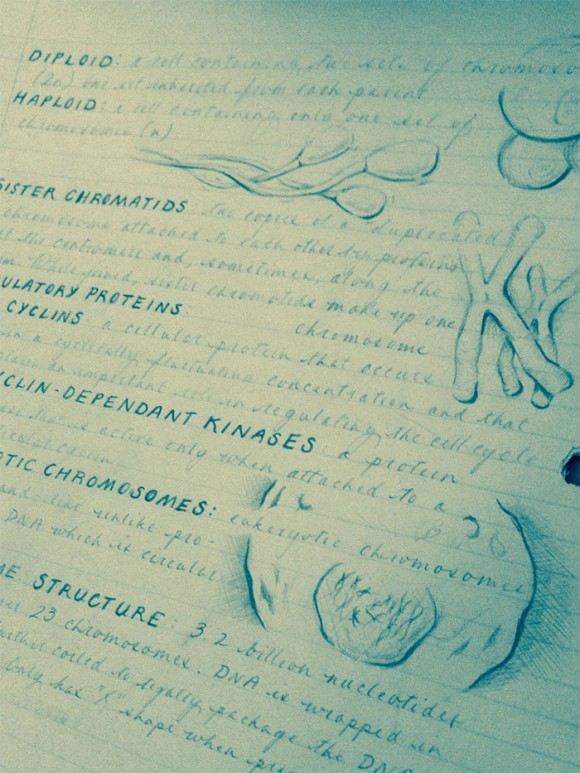 DIPLOID: a cell containing two sets of chromoso
(2n) one set inherited from each parent
HAPLOID: a cell containing only one set of
chromosomes (n)
SISTER CHROMATIDS two copies of a duplicated
chromosome attached to each other by proteins
at the centromere and, sometimes, along the
While joined, sister chromatids make up one
chromosome
ULATORY PROTEINS:
CYCLINS a cellular protein that occurs
in a cyclically fluctuating concentration and that
plays an important role in regulating the cell cycle
YCLIN-DEPENDANT KINASES: a protein
that is active only when attached to a
cyclin
OTIC CHROMOSOMES: eukaryotic chromosomes
and like unlike pro-
DNA which is circular
ME STRUCTURE: 3.2 billion nucleotides
23 chromosomes. DNA is wrapped in
further coiled to package the DNA
Only has "X" shape when pre